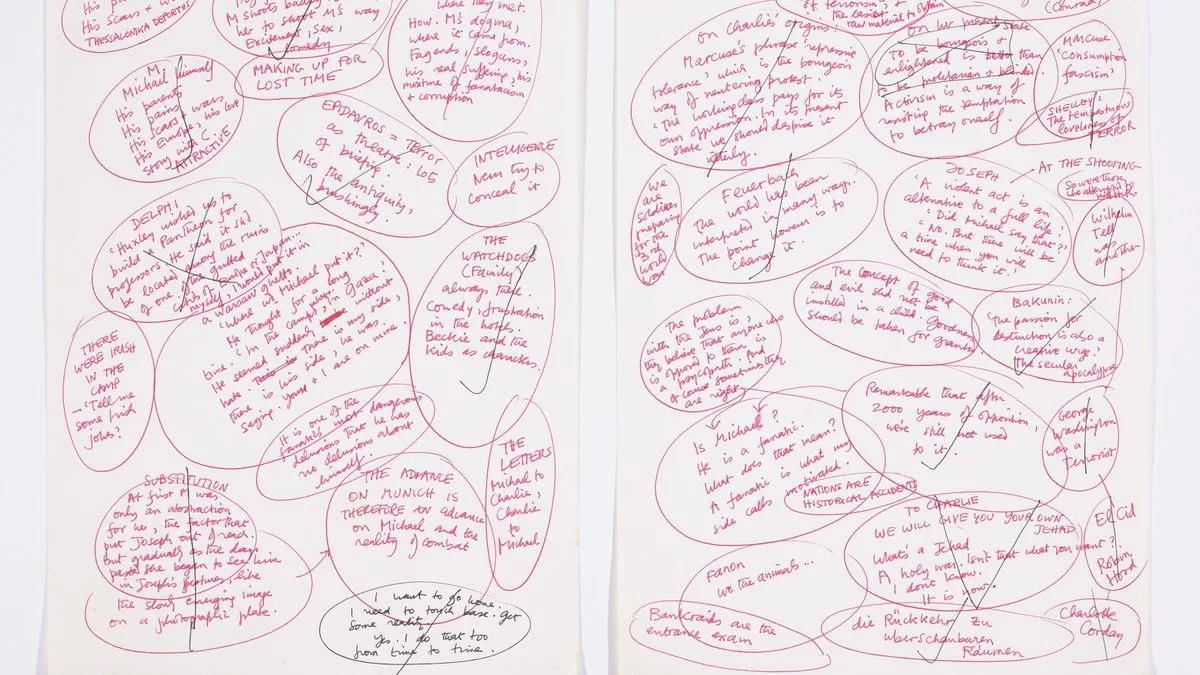 His scars + w
THESSALONIKA DEPORTUS
M shoots badly
her to shoot M's way
Excitement, Sex,
comedy
where they met.
How. M's dogma,
where it came from.
Fagends, slogans,
his real suffering, his
mixture of fanaticism
+ corruption
MAKING UP FOR
LOST TIME
M.
Michael himself
His parents
His pains
His scars + wars
His Europe, his love
story with C.
ATTRACTIVE
EPIDAVROS = TERROR
as theatre: lots
of briefing.
Also the antiquity,
INTELLIGENCE
Never try to
conceal it
DELPHI
'Huxley wished us to
build a Pantheon for
professors. He said it shd
be located among the ruins
of one of the gutted
cities of Europe or Japan...
myself, I would put it in
a Warsaw ghetto.'
'Where wd Michael put it?'
He thought for a long
time. 'In the camps, in Gaza.'
He seemed suddenly without
hate. There is my side,
there is his side, he was
saying. Yours + I are on mine.
THE
WATCHDOGS
(Family)
always there.
Comedy, frustration
in the hotels.
Beckie and the
kids as characters.
THERE
WERE IRISH
IN THE
CAMP
- 'Tell me
some Irish
jokes?'
It is one of the
fanatic's most dangerous
delusions that he has
no delusions about
himself.
SUBSTITUTION
At first M was
only an abstraction
for her, the factor that
put Joseph out of reach.
But gradually as the days
passed she began to see him
in Joseph's features, like
the slowly emerging image
on a photographic plate.
THE ADVANCE
ON MUNICH IS
THEREFORE AN advance
on Michael and the
reality of combat
THE
LETTERS
Michael to
Charlie,
Charlie
to
Michael
I want to go home.
I need to touch base. get
some reality.
Yes. I do that too
from time to time.
of terrorism, +
the easiest
raw material to obtain
(Conrad)
On Charlie's origins:
Marcuse's phrase 'repressive
tolerance', which is the bourgeois
way of neutering protest.
'The working class pays for its
own oppression. In its present
state we should despise it
utterly.
On the present state
To be bourgeois +
enlightened is better than
to be proletarian + blinded.
Activism is a way of
resisting the temptation
to betray oneself.
MARCUSE
'consumption
fascism'
SHELLEY:
The tempestuous
loveliness of
TERROR
We are
soldiers
preparing
for the
3rd
world
war
Feuerbach
The world has been
interpreted in many ways.
The point however is to
change it.
JOSEPH
'A violent act is an
alternative to a full life.'
'Did Michael say that?'
'No. But there will be
a time when you will
need to think it.'
AT THE SHOOTING
So were those
who attempted
Wilhelm
Tell
was
another
The concept of good
and evil shd not be
instilled in a child. Goodness
should be taken for granted.
Bakunin:
'The passion for
destruction is also a
creative urge.'
The secular
apocalypse
The problem
with the Jews is,
they believe that anyone who
is opposed to them is
a psycopath. And
of course sometimes they
are right.
Is Michael?
He is a fanatic.
What does that mean?
A fanatic is what my
side calls motivated.
NATIONS ARE
HISTORICAL ACCIDENTS
Remarkable that after
2000 years of opposition,
we're still not used
to it.
George
Washington
was a
Terrorist
TO CHARLIE
WE WILL GIVE YOU YOUR OWN
JEHAD
What's a Jehad
A holy war. Isn't that what you want?
I don't know.
It is now.
El Cid
Robin
Hood
Fanon
We the animals...
Bankraids are the
entrance exam
die Rückkehr zu
überschaubaren
Räumen
Charlotte
Corday